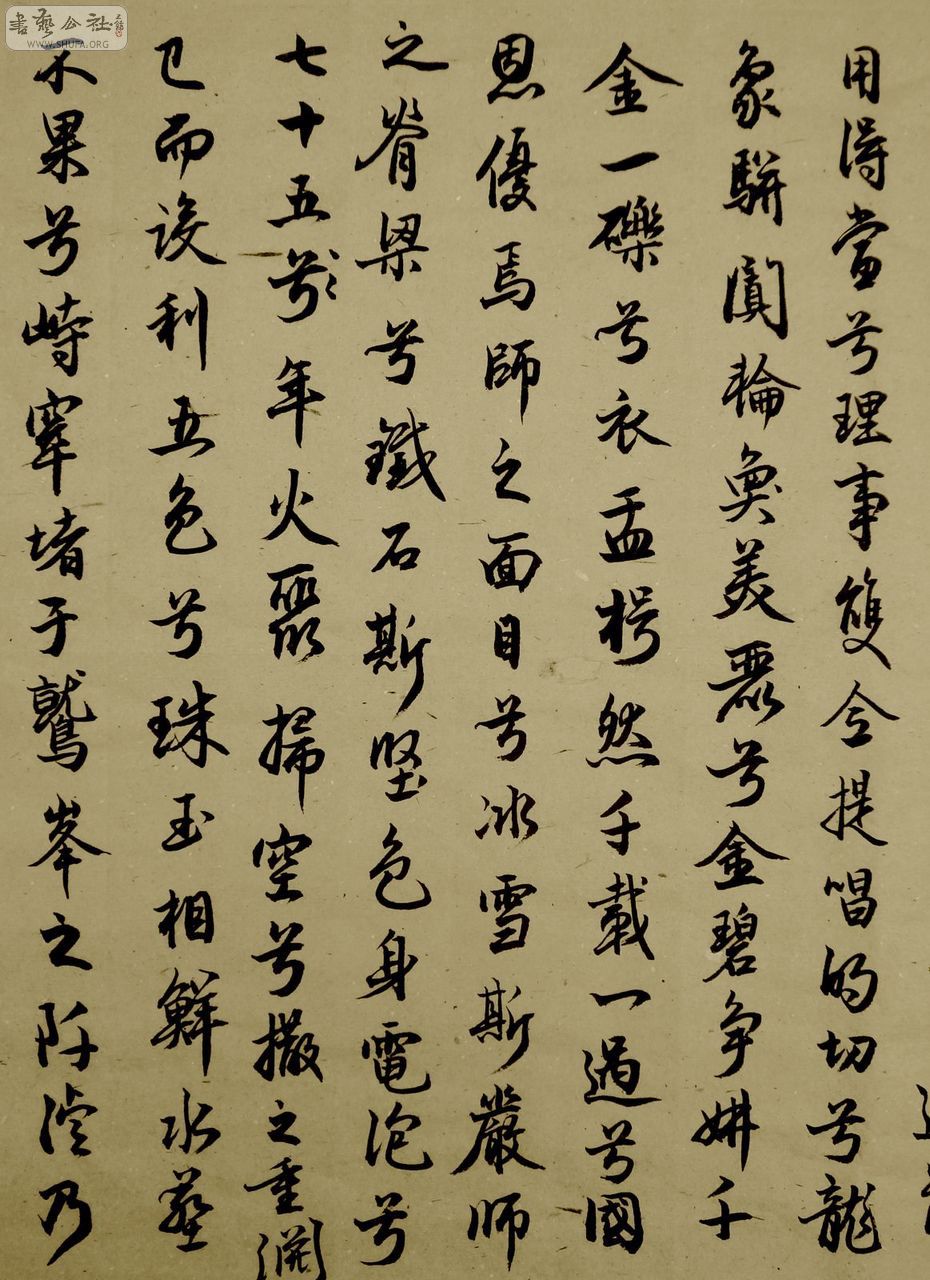 用得當兮理事雙全提唱的切兮龍
象駢闐輪奐美麗兮金碧争妍千
金一礫兮衣盂枵然千載一遇兮國
恩優焉師之面目兮冰雪斯嚴師
之脊梁兮鐵石斯堅色身電泡兮
七十五兮年火聚掃空兮撒之重淵
已而設利五色兮珠玉相鮮水葬
不果兮峙窣堵于鷲峯之阡濬乃
書藝公社
WWW.SHUFA.ORG